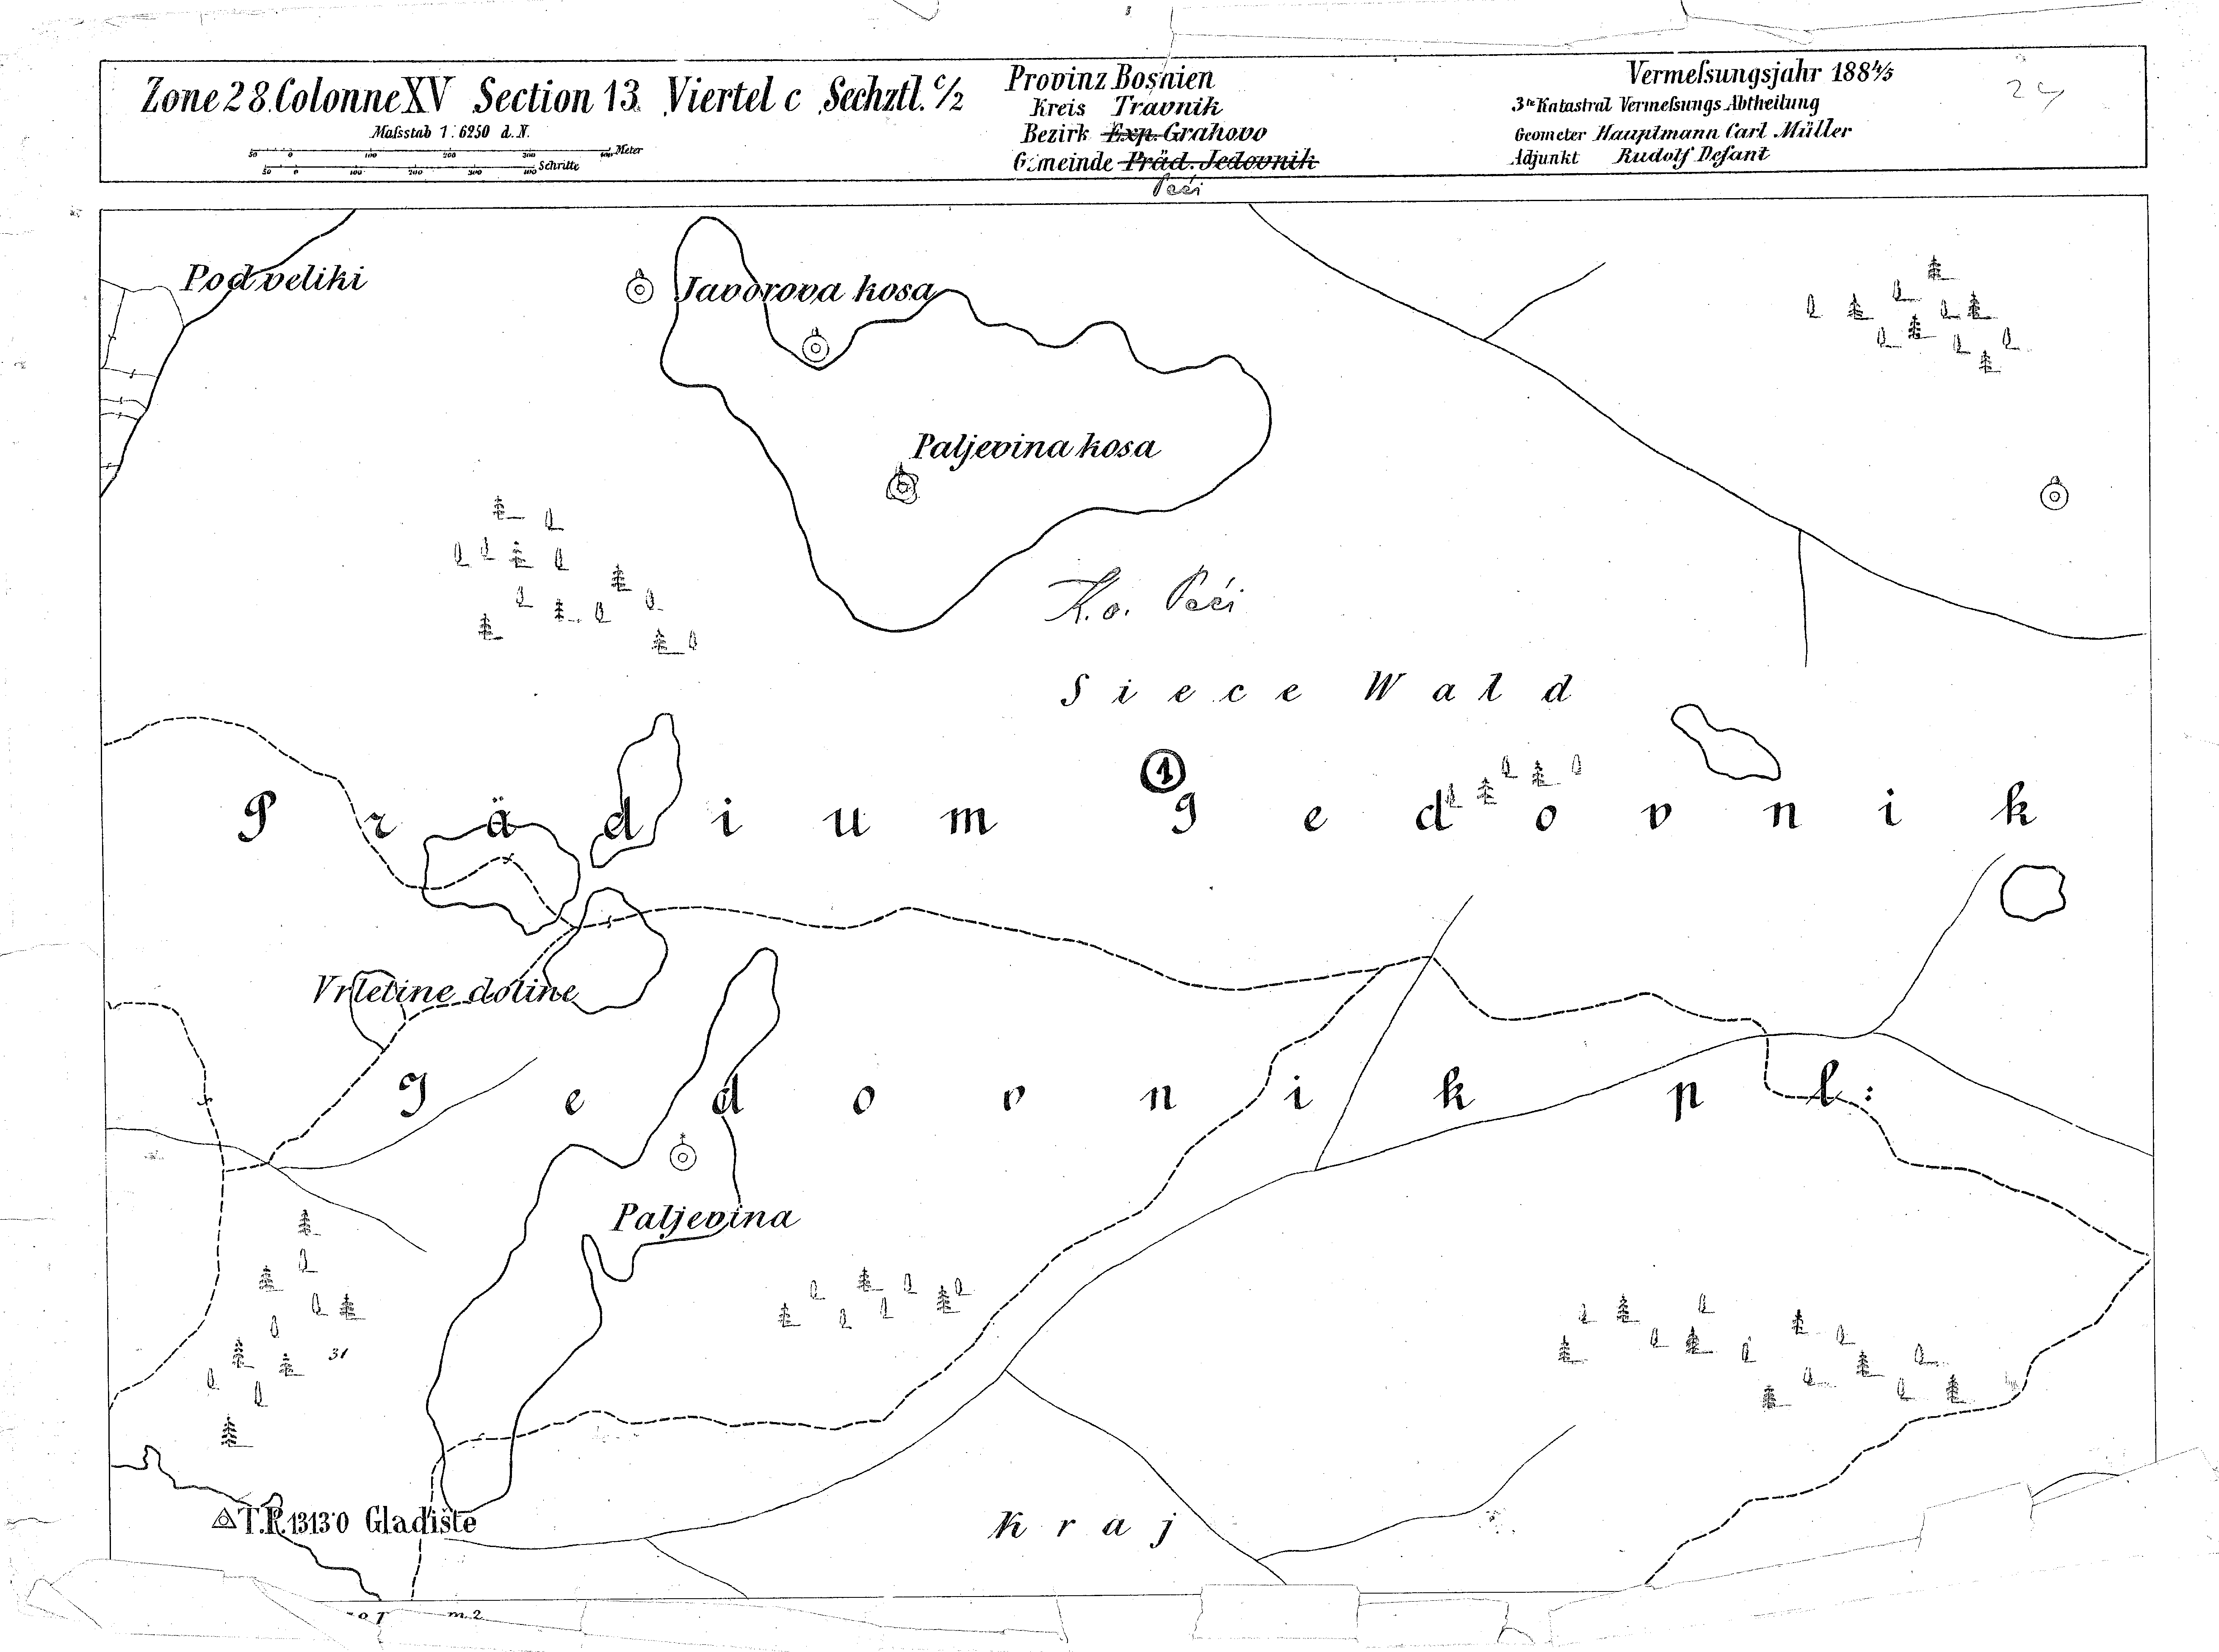 Zone 28. Colonne XV Section 13. Viertel c Sechztl. c/2
Maſsstab 1 : 6250 d. N.
50 0 100 200 300 400 Meter
50 0 100 200 300 400 Schritte
Provinz Bosnien
Kreis Travnik
Bezirk Exp. Grahovo
Gemeinde Präd. Jedovnik
Peći
Vermeſsungsjahr 1884/5
3te Katastral Vermeſsungs Abtheilung
Geometer Hauptmann Carl Müller
Adjunkt Rudolf Defant
Podveliki
Javorova kosa
Paljevina kosa
K.o. Peći
Siece Wald
1
Prädium Jedovnik
Vrletine doline
Jedovnik pl:
Paljevina
31
T.P. 1313·0 Gladište
Kraj